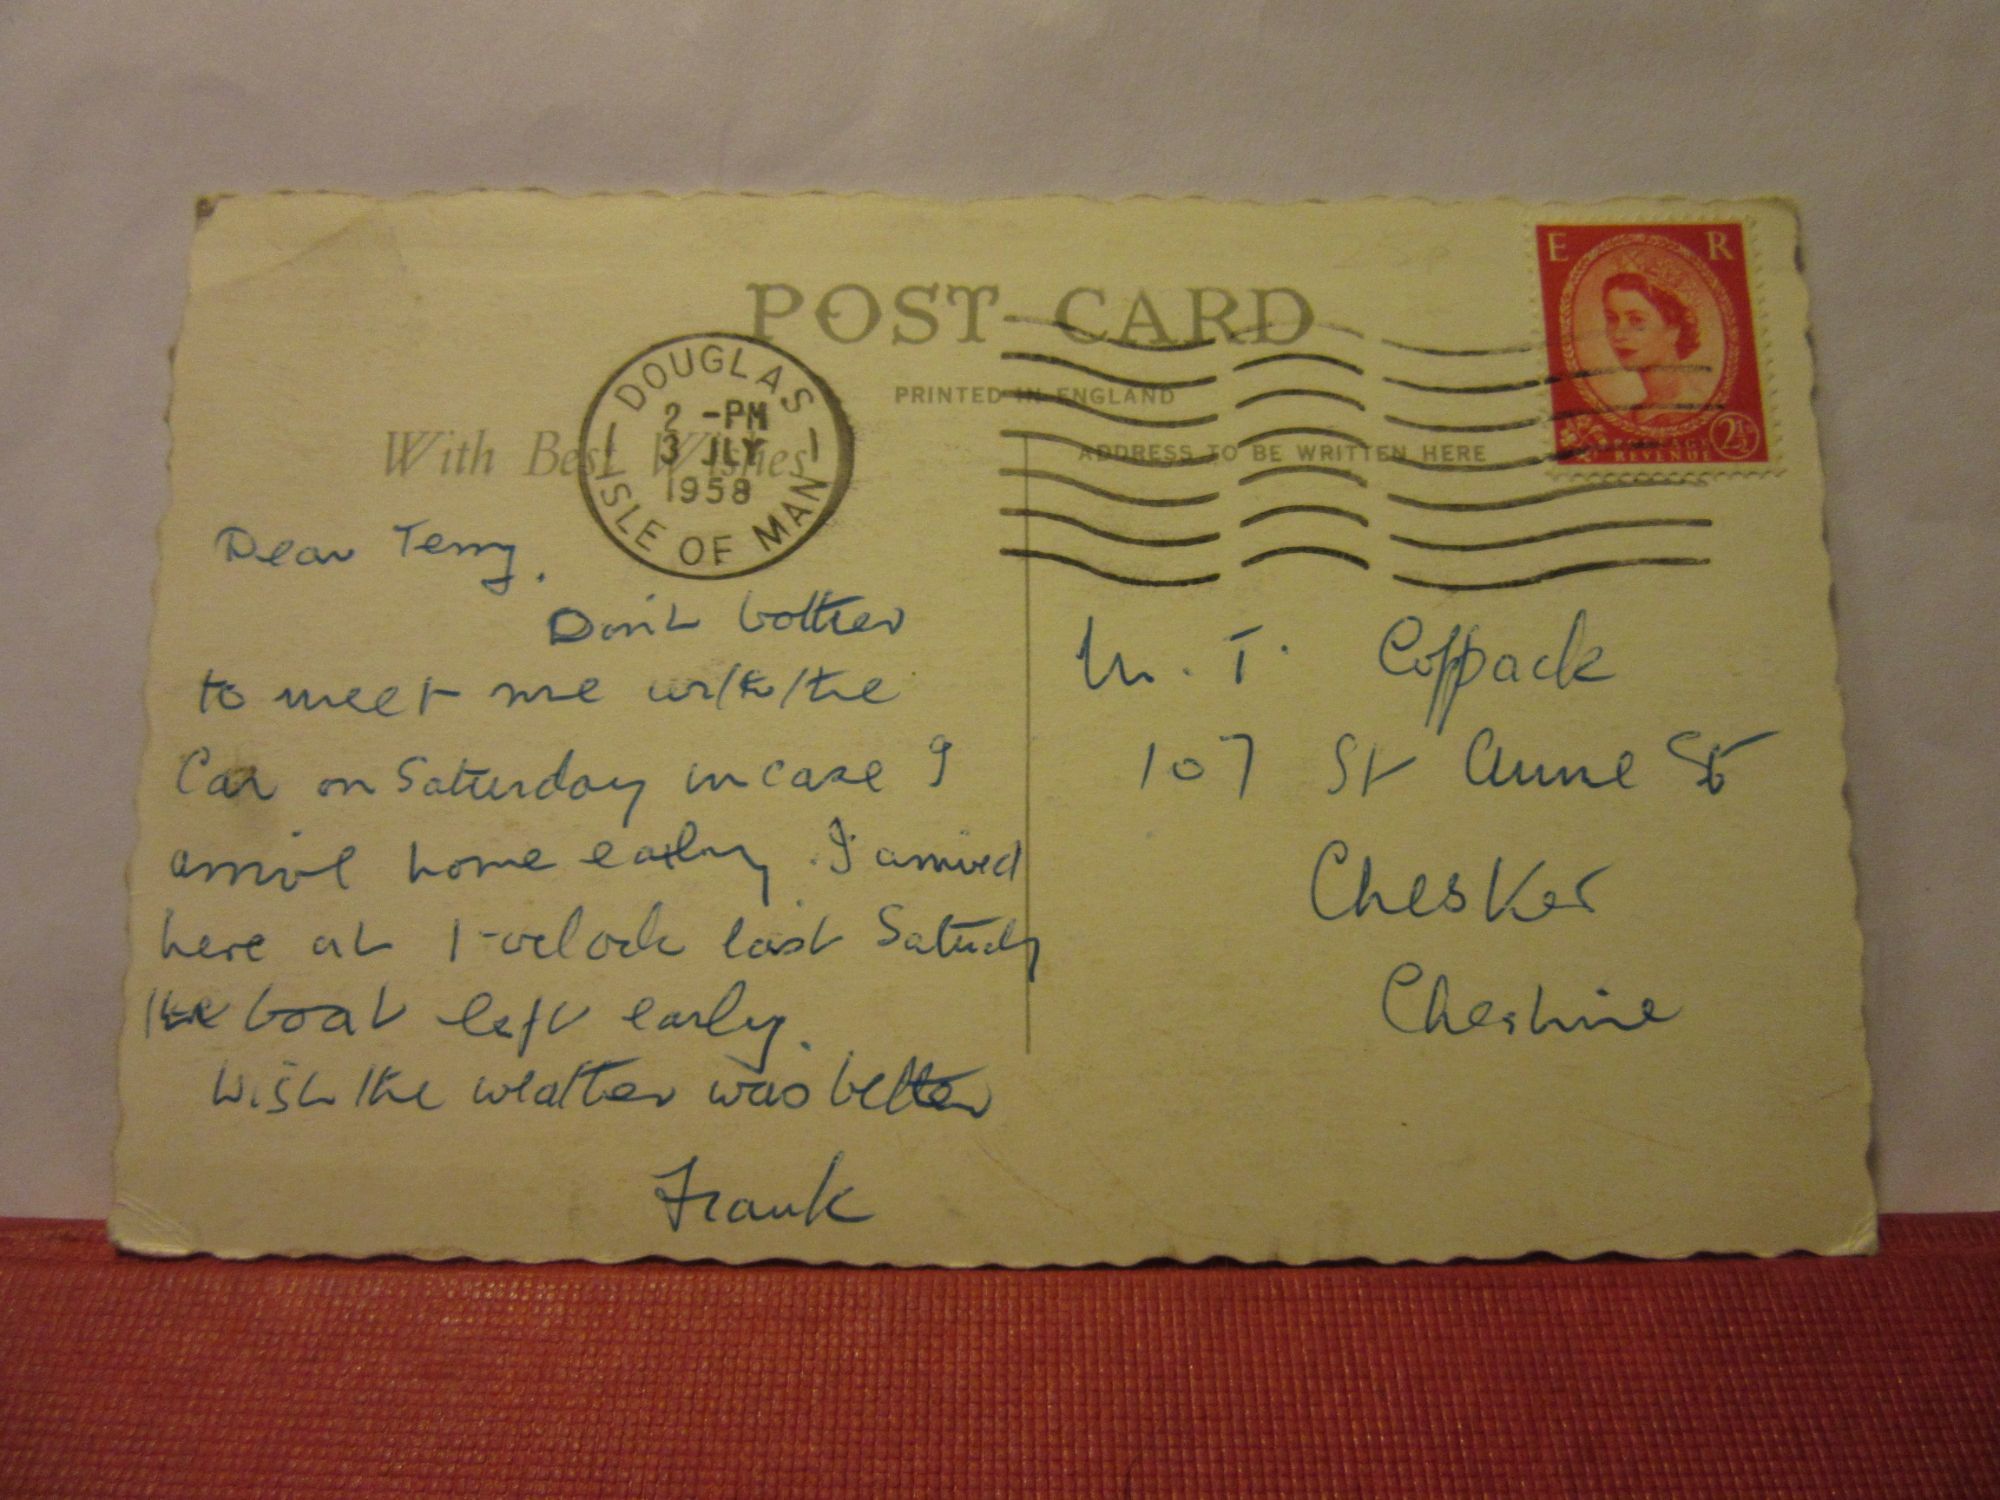 POST CARD
PRINTED IN ENGLAND
With Best Wishes
ADDRESS TO BE WRITTEN HERE
DOUGLAS
2 -PM
3 JLY
1958
ISLE OF MAN
E R
POSTAGE
REVENUE
2½
Dear Terry.
Don't bother
to meet me with the
Car on Saturday in case I
arrive home early. I arrived
here at 1-oclock last Saturday
the boat left early.
Wish the weather was better
Frank
M. T. Coppack
107 St Anne St
Chester
Cheshire